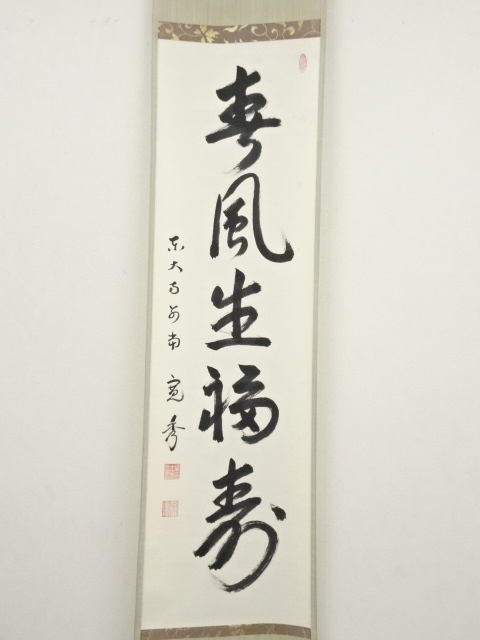 春風生福寿
東大寺別当 寛秀